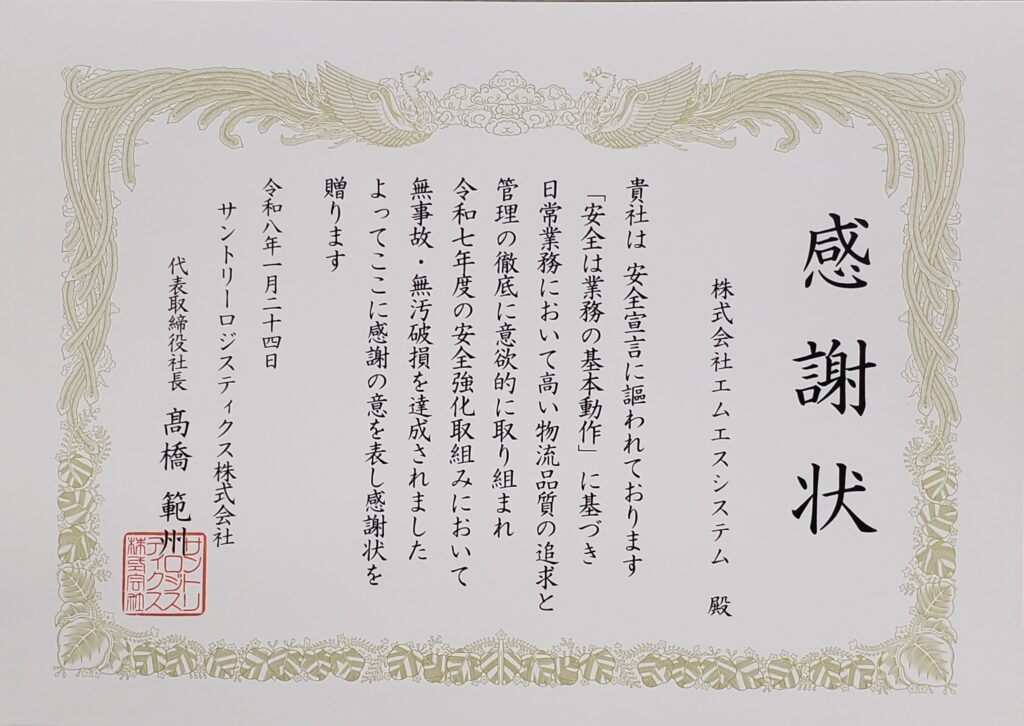 感謝状
株式会社エムエスシステム 殿
貴社は 安全宣言に謳われております
「安全は業務の基本動作」に基づき
日常業務において高い物流品質の追求と
管理の徹底に意欲的に取り組まれ
令和七年度の安全強化取組みにおいて
無事故・無汚破損を達成されました
よってここに感謝の意を表し感謝状を
贈ります
令和八年一月二十四日
サントリーロジスティクス株式会社
代表取締役社長 髙橋 範州
サントリ
ーロジス
ティクス
株式会社